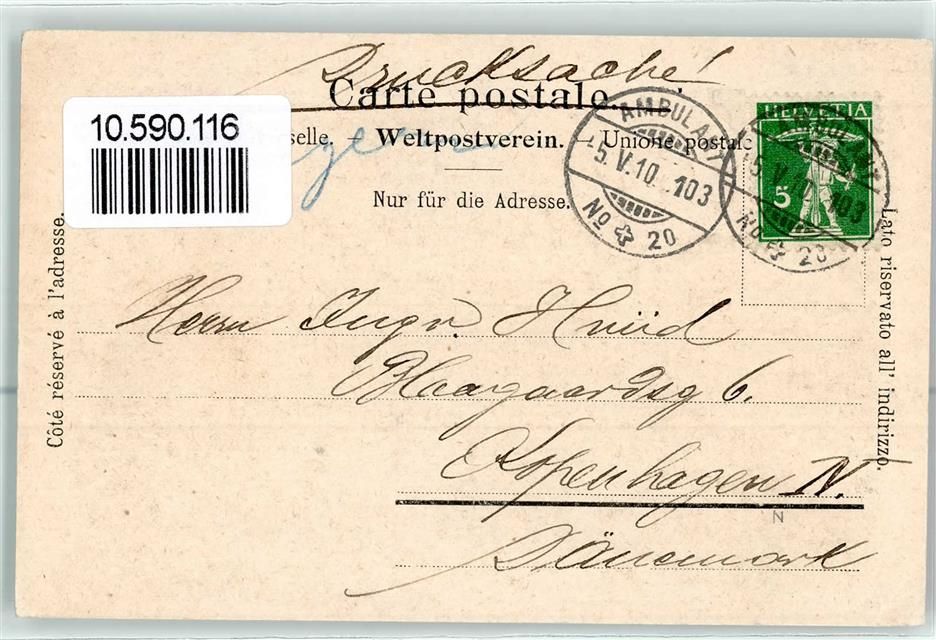 Drucksache!
Carte postale.
10.590.116
selle. Weltpostverein. Unione postale
Nur für die Adresse.
AMBULANT
5.V.10 103
No 20
HELVETIA
5
AMBULANT
5.V.10 103
No 20
Côté réservé à l'adresse.
Lato riservato all' indirizzo.
Herrn Ingv.
Blaagaardsg 6.
Kopenhagen N.
N
Dänemark